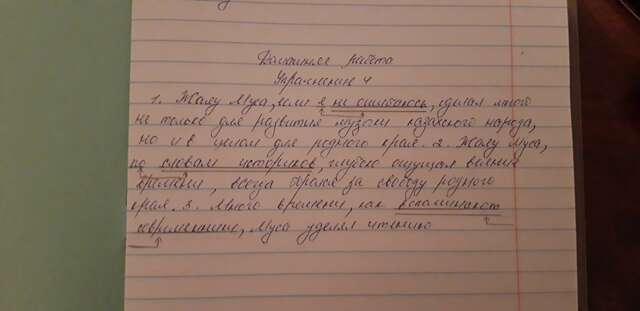 Домашняя работа
Упражнение 4
1. Жаяу Муса, если я не ошибаюсь, сделал много
не только для развития музыки казахского народа,
но и в целом для родного края. 2. Жаяу Муса,
по словам историков, глубоко ощущал веяние
времени, всегда дрался за свободу родного
края. 3. Много времени, как вспоминают
современники, Муса уделял чтению